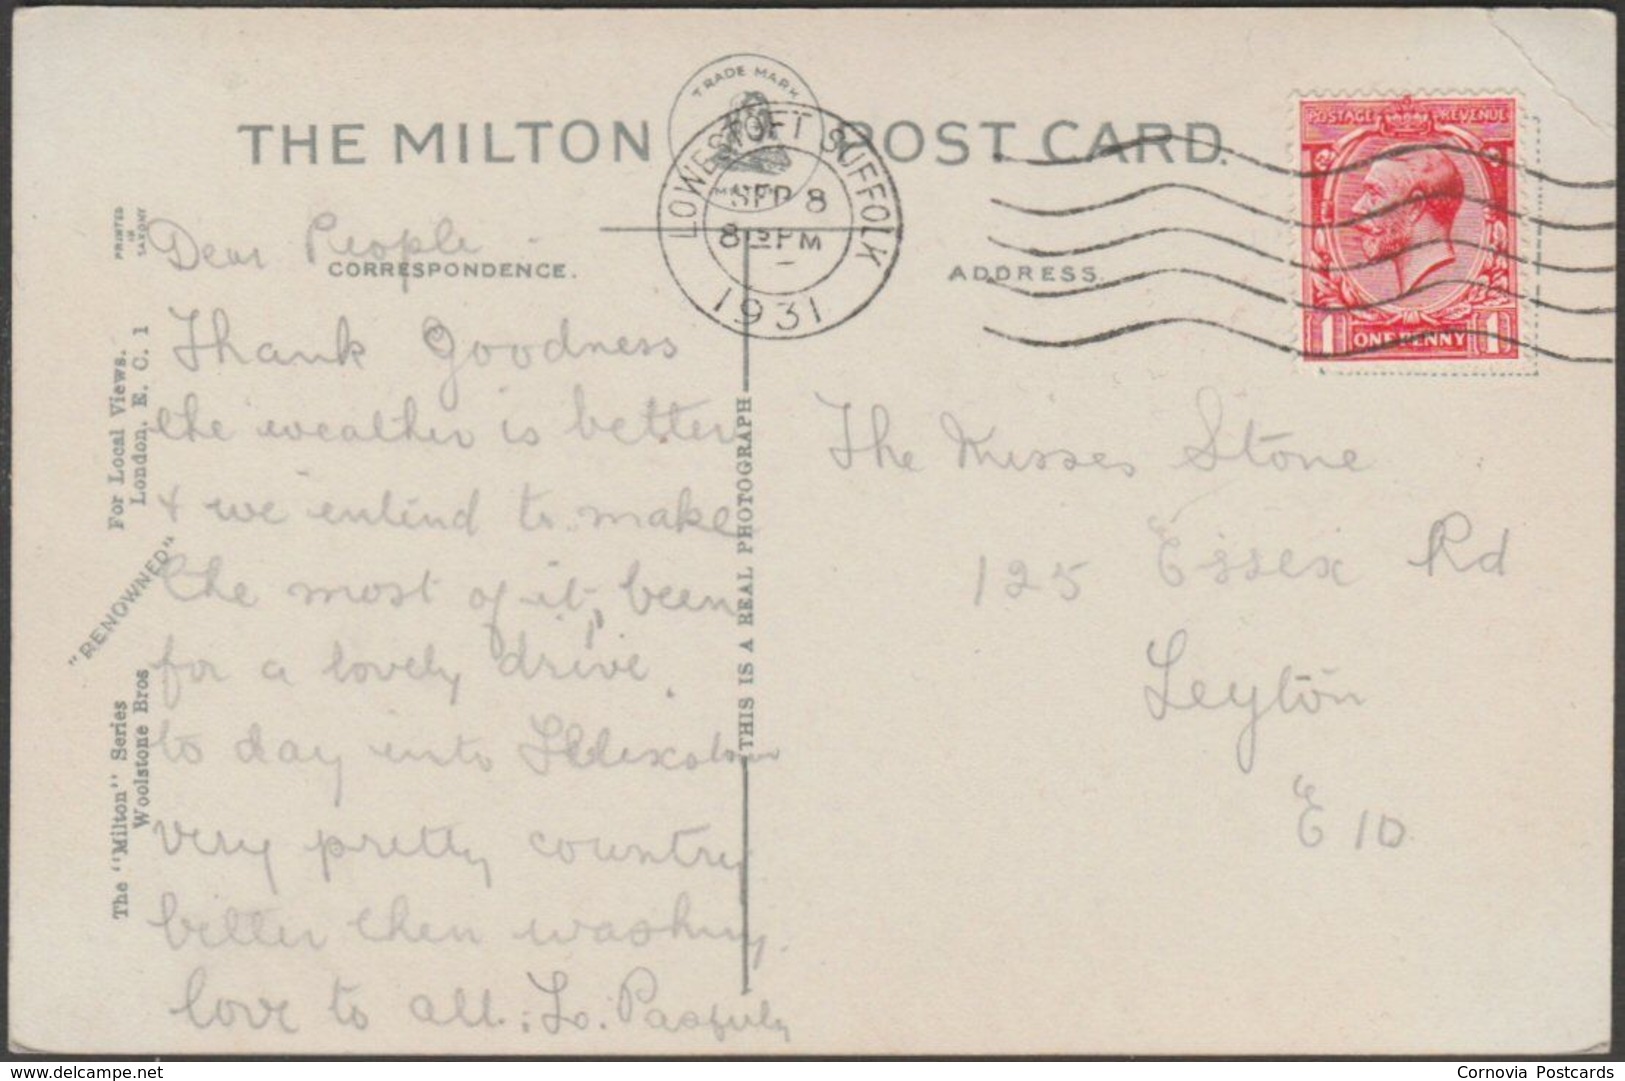 THE MILTON POST CARD.
TRADE MARK
LOWESTOFT SUFFOLK
SEP 8
8 15 PM
1931
POSTAGE REVENUE
1 ONE PENNY 1
PRINTED
IN
SAXONY
CORRESPONDENCE.
ADDRESS.
For Local Views.
London. E. C. 1
"RENOWNED"
The "Milton" Series
Woolstone Bros
THIS IS A REAL PHOTOGRAPH
Dear People
Thank Goodness
the weather is better
& we intend to make
the most of it, been
for a lovely drive
to day into
very pretty country
better then washing.
love to all.
The Misses Stone
125 Essex Rd
Leyton
E 10
Cornovia Postcards